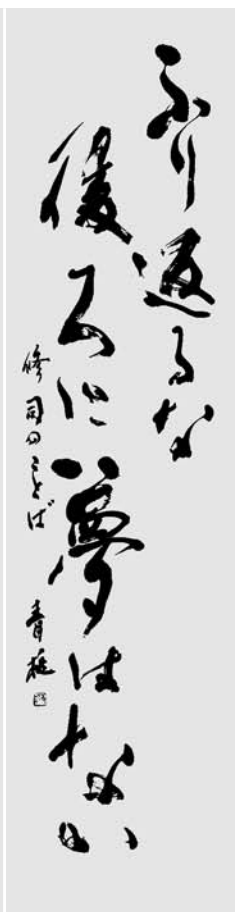 ふり返るな
後ろに夢はない
修司のことば 青